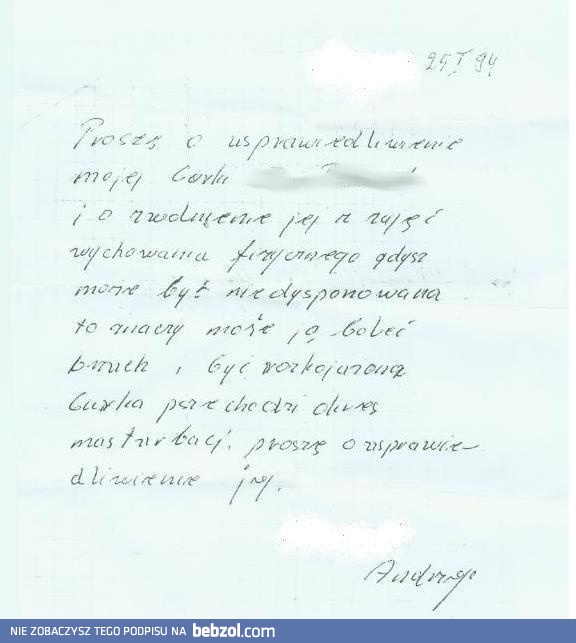 25 I 94
Proszę o usprawiedliwienie
mojej Curki
i o zwolnienie jej z zajęć
wychowania fizycznego gdysz
może być niedysponowana
to znaczy może ją boleć
bżuch i być rozkojarzona
Curka perzechodzi okres
masturbacj. proszę o usprawie-
dliwienie jej.
Andrzej
NIE ZOBACZYSZ TEGO PODPISU NA bebzol.com